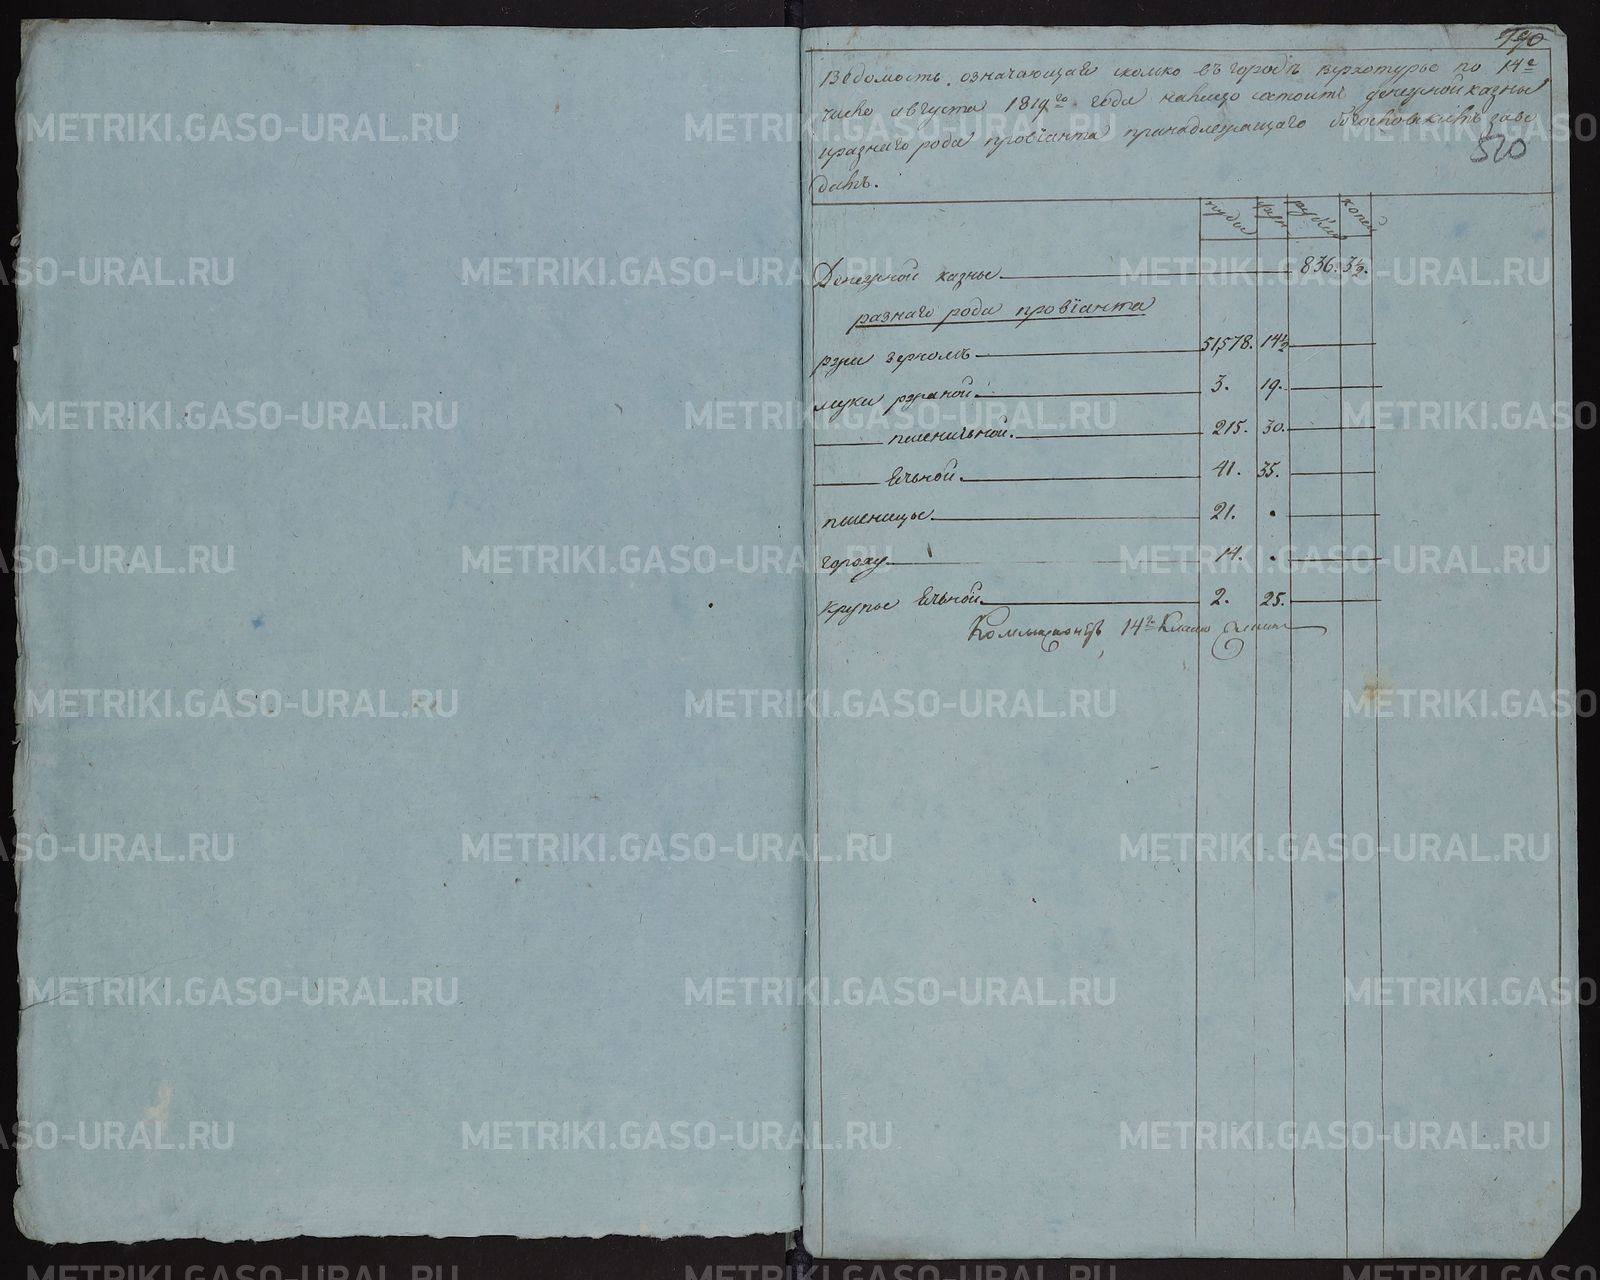 790
Ведомость означающая сколько въ городѣ верхотурье по 14е
число августа 1819го года налицо состоитъ денежной казны
и разнаго рода провїанта принадлежащаго Богословскимъ заво
дамъ.
520
пуды фун рубли копей
Денежной казны 836. 3½.
разнаго рода провїанта
ржи зерномъ 51,578. 14½
муки ржаной 3. 19.
пшеничной. 215. 30.
Ечьной. 41. 35.
пшеницы 21.
гороху 14.
крупы Ечьной 2. 25.
Коммиціонеръ 14го Класса
METRIKI.GASO-URAL.RU